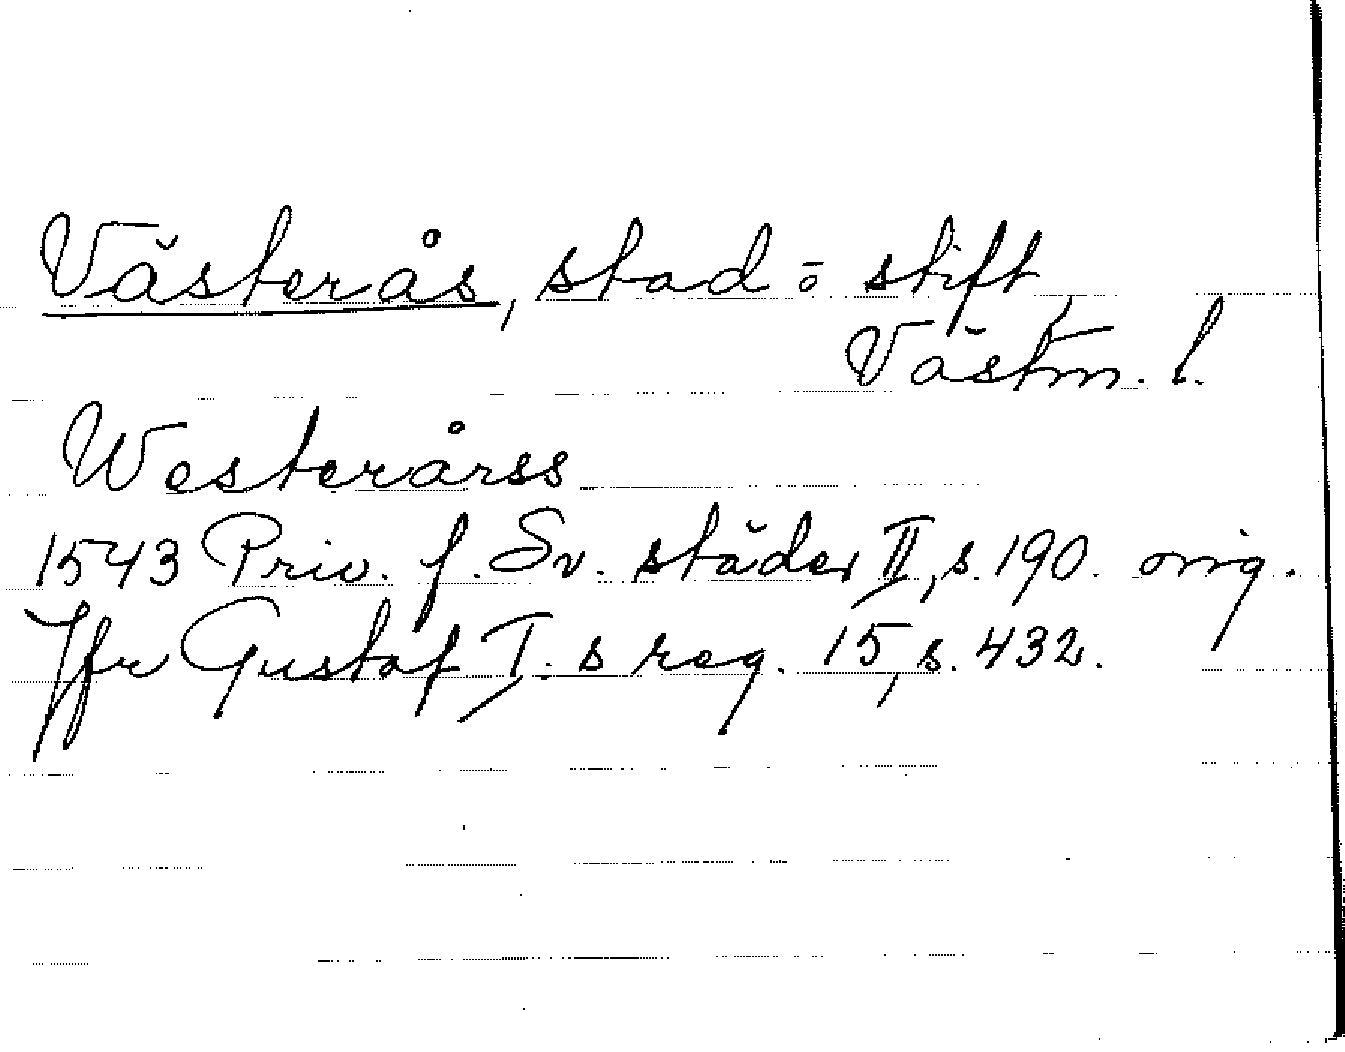 Västerås, stad o stift
Västm. l.
Westerårss
1543 Priv. f. Sv. städer II, s. 190. orig.
Jfr Gustaf I. s reg. 15, s. 432.